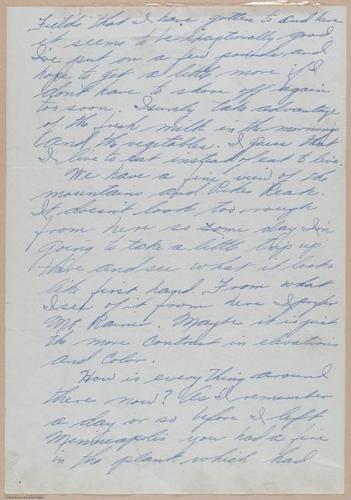 Fields that I have gotten to and here
it seems to be exaptionally good.
I've put on a few pounds and
hope to get a little more if I
don't have to shove off again
too soon. I surely take advantage
of the fresh milk in the mornings
and the vegetables. I guess that
I live to eat instead of eat to live.
We have a fine view of the
mountains and Pikes Peak.
It doesn't look too rough
from here so some day I'm
going to take a little trip up
there and see what it looks
like first hand. From what
I see of it from here I prefer
Mt. Ranier. Maybe it is just
the more contrast in elevations
and color.
How is everything around
there now? As I remember
a day or so before I left
Minneapolis you had a fire
in the plant which had